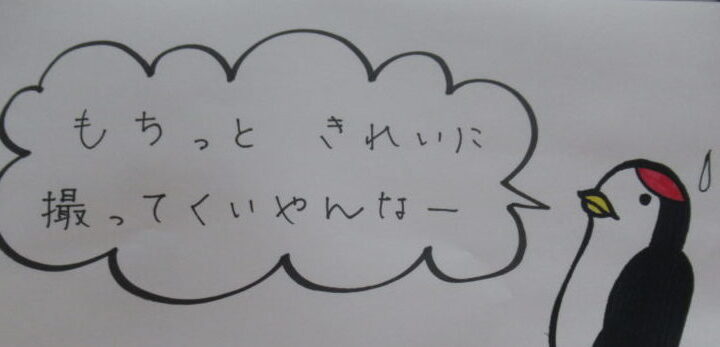 もちっと きれいに
撮ってくいやんなー